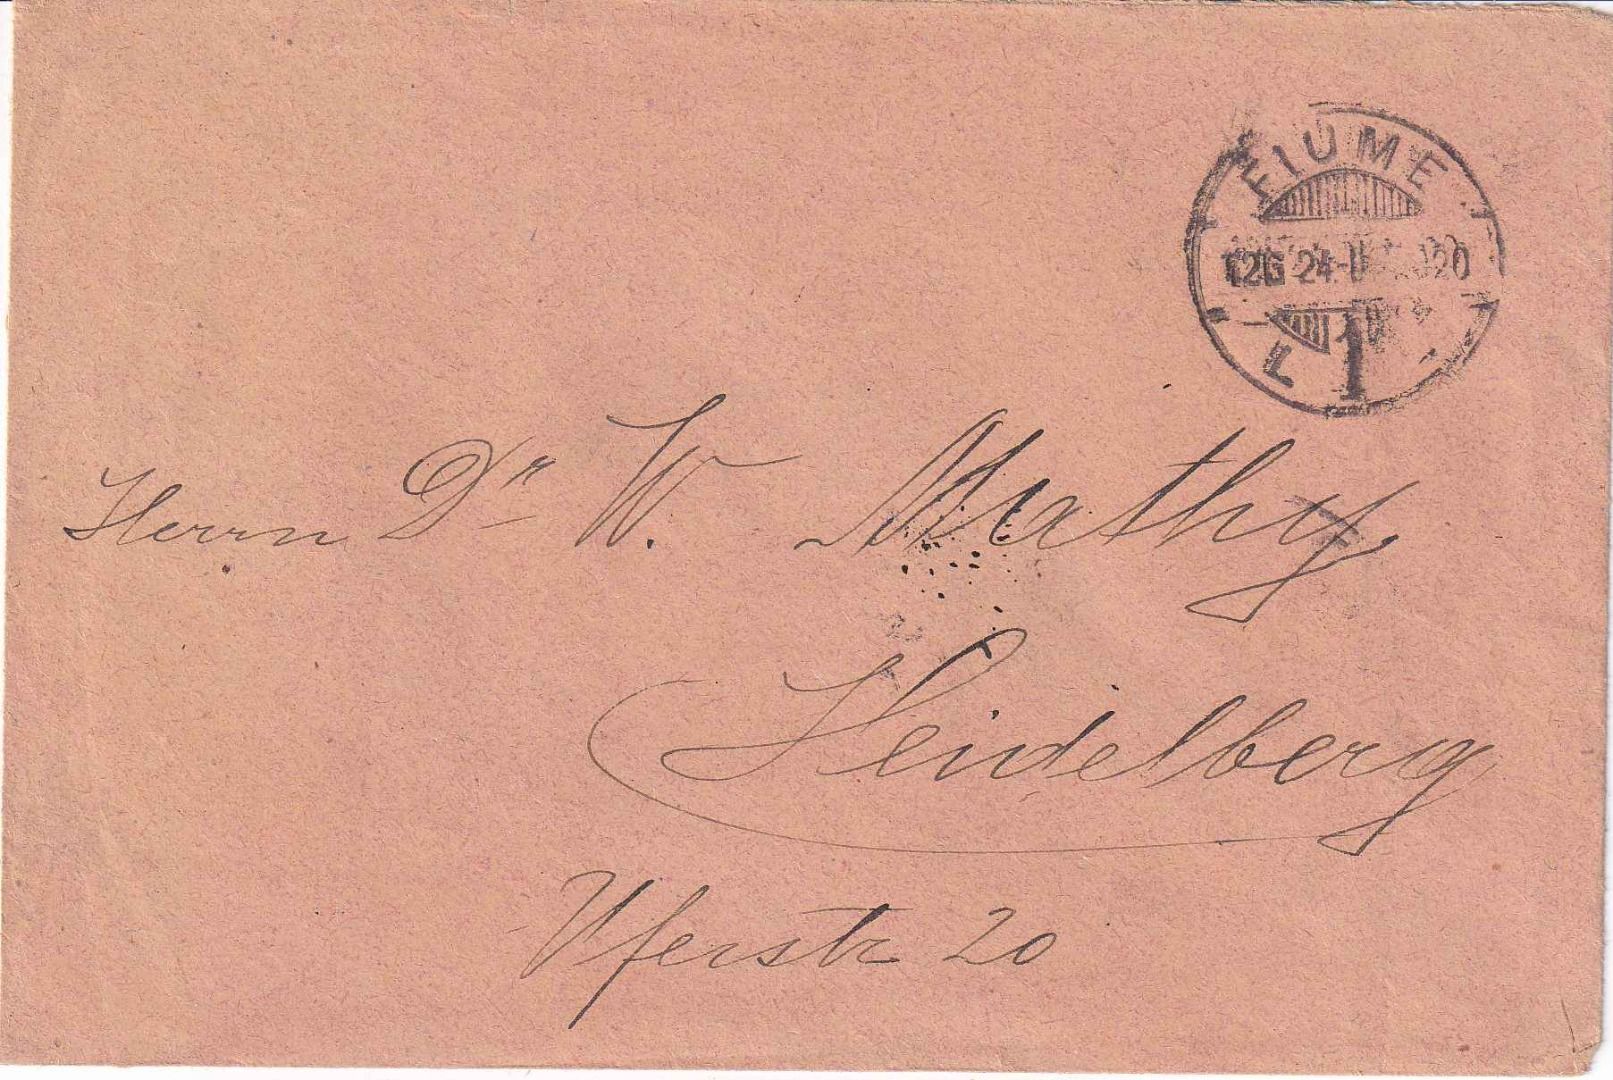 FIUME
12G 24
20
L 1
Herrn Dr W. Mathy
Heidelberg
Uferstr 20